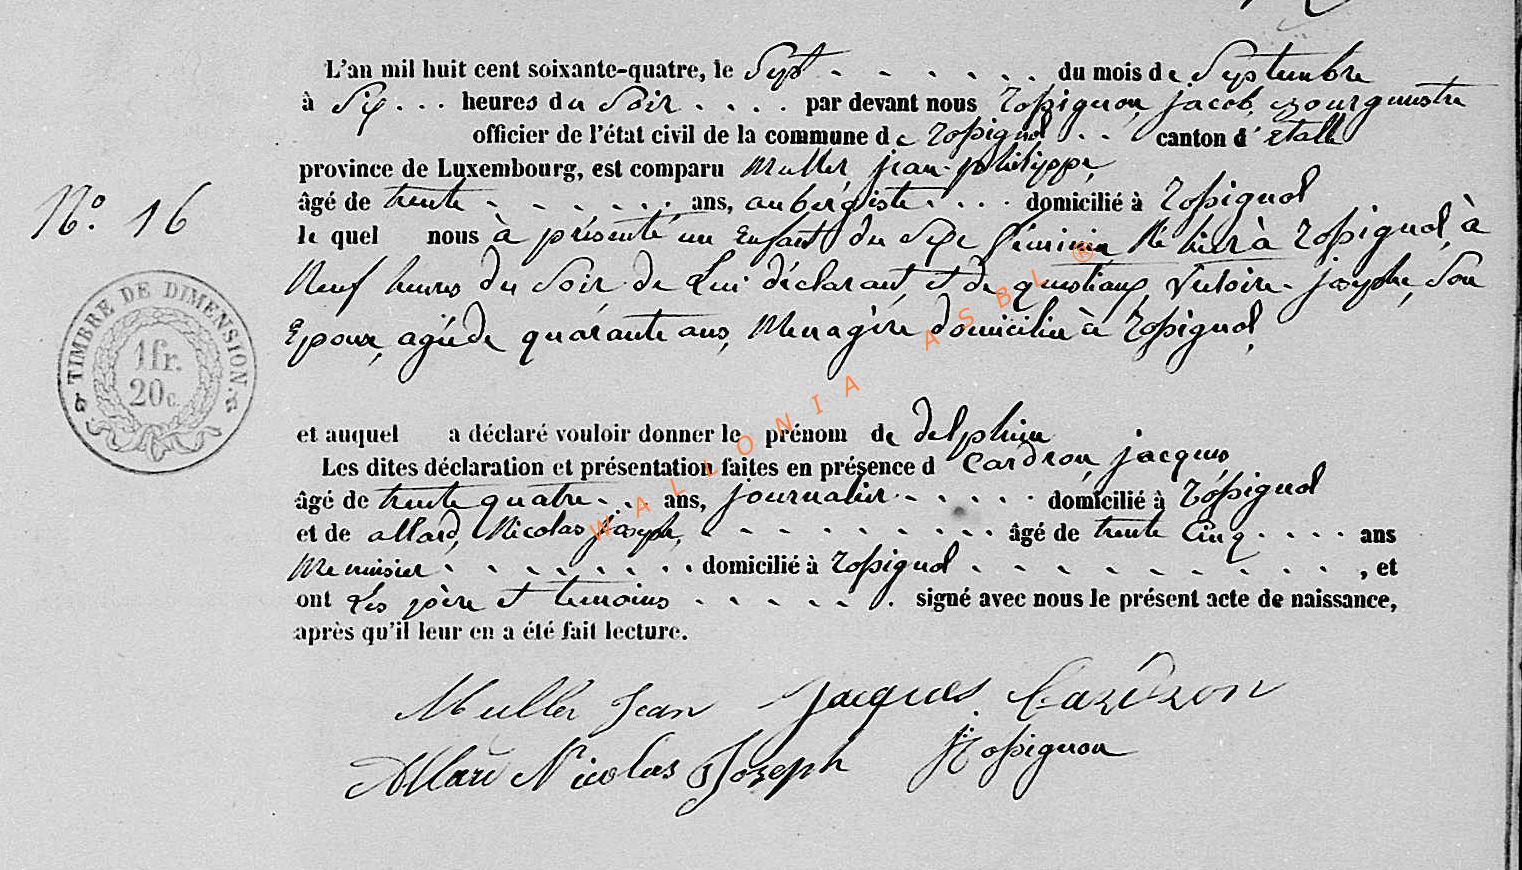 L'an mil huit cent soixante-quatre, le Sept . . . . . . du mois de Septembre
à Six . . . heures du Soir . . . . par devant nous Rossignon, jacob, Bourgmestre
officier de l'état civil de la commune de Rossignol . . canton d'Etalle
province de Luxembourg, est comparu Muller, jean-philippe,
N°. 16
âgé de trente . . . . . . . ans, aubergiste . . . . domicilié à Rossignol
lequel nous à présenté un Enfant du Sexe féminin Né hier à Rossignol, à
Neuf heures du Soir de Lui déclarant, et de Victoire-josephe, Son
TIMBRE DE DIMENSION.
1 fr.
20 c.
Epouse, agée de quarante ans, Menagère domicilié à Rossignol,
et auquel a déclaré vouloir donner le prénom de delphine
Les dites déclaration et présentation faites en présence d Cardron, jacques
âgé de trente quatre . . . ans, journalier . . . . . domicilié à Rossignol
et de allard, Nicolas joseph, . . . . . . . . . . âgé de trente Cinq . . . . ans
Menuisier . . . . . . . . domicilié à Rossignol . . . . . . . . . . . , et
ont Les père et temoins . . . . . . signé avec nous le présent acte de naissance,
après qu'il leur en a été fait lecture.
Muller Jean Jacques Cardron
Allard Nicolas Joseph J Rossignon
WALLONIA ASBL ®